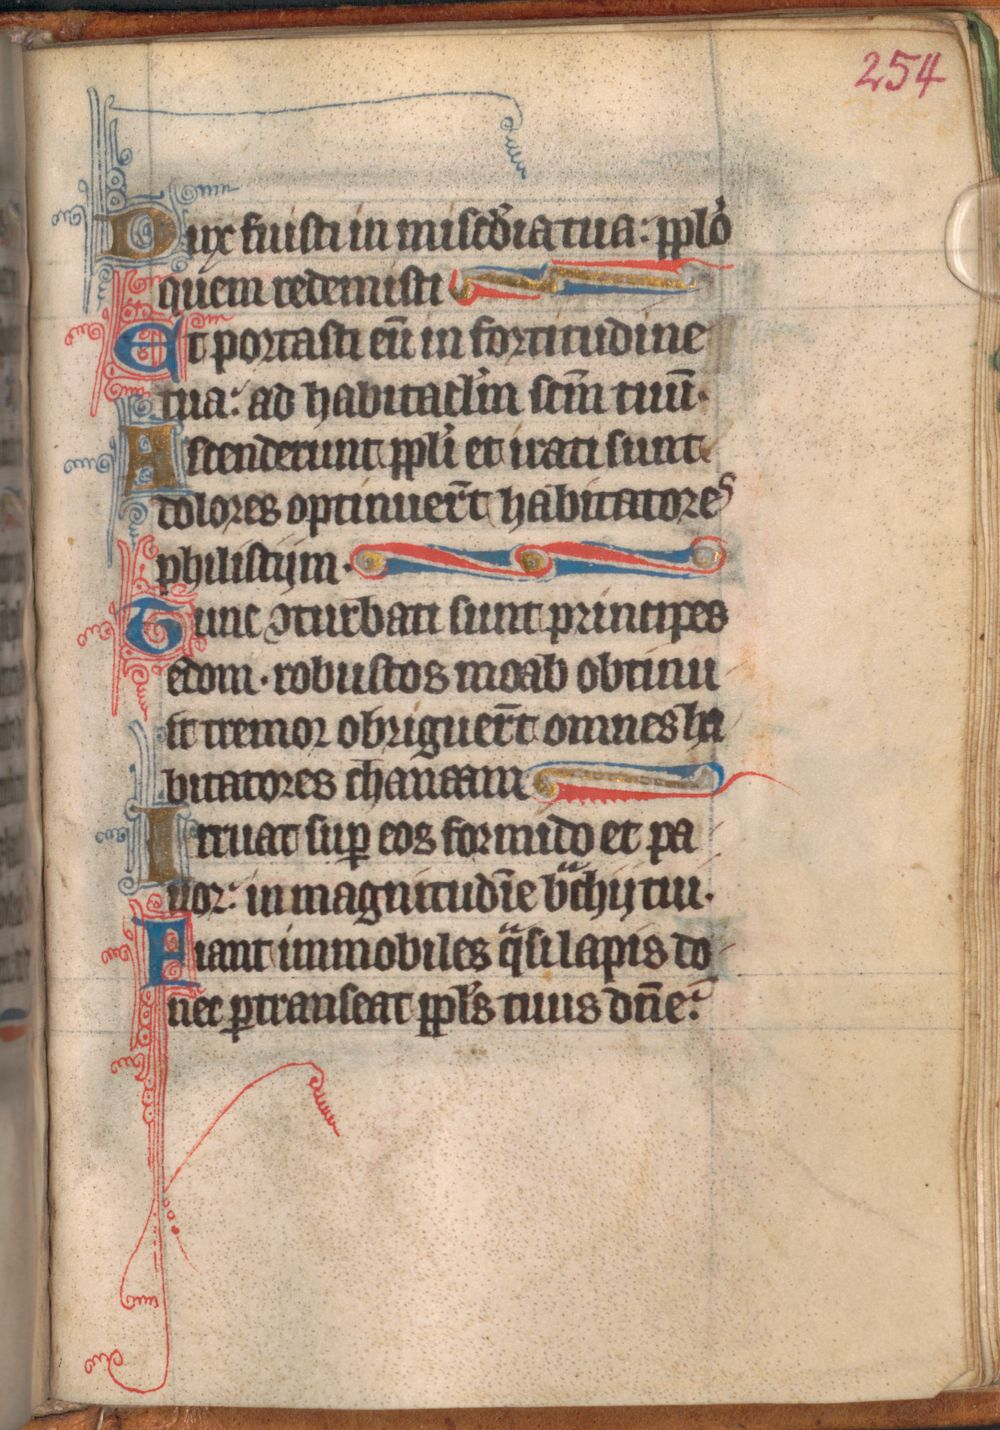 254
Dux fuisti in mis̄c̄dia tua: pplo̓
quem redemisti
Et portasti eū in fortitudine
tua: ad habitacl̓m sc̄m tuū·
Ascenderunt ppl̓i et irati sunt
dolores optinuer̄t habitatores
philistijm·
Tunc ɔturbati sunt principes
edom· robustos moab obtinu
it tremor obriguer̄t omnes ha
bitatores chanaam
Irruat suꝑ eos formido et pa
uor: in magnitud̄ie bͣchij tui·
Fiant immobiles qͣsi lapis do
nec ꝑtranseat ppl̓s tuus dn̄e: